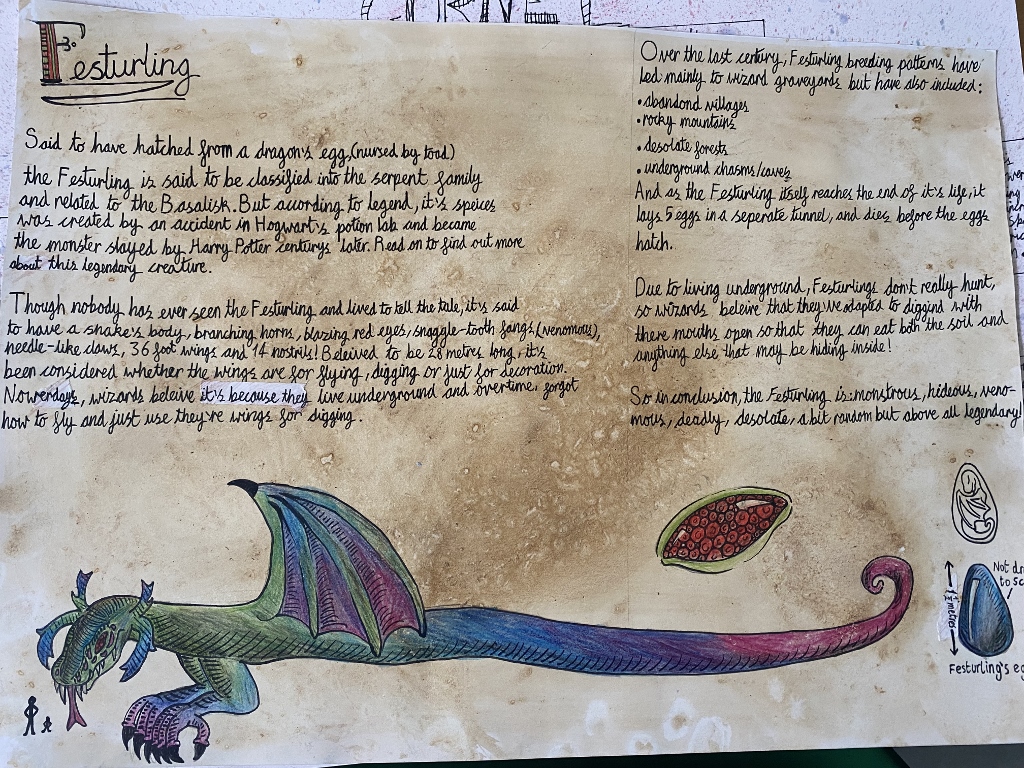 Festurling
Said to have hatched from a dragon's egg,(nursed by toad)
the Festurling is said to be classified into the serpent family
and related to the Basalisk. But according to legend, it's speices
was created by an accident in Hogwart's potion lab and became
the monster slayed by Harry Potter centurys later. Read on to find out more
about this legendary creature.
Though nobody has ever seen the Festurling and lived to tell the tale, it's said
to have a snake's body, branching horns, blazing red eyes, snaggle-tooth fangs,(venomous),
needle-like claws, 36 foot wings and 14 nostrils! Beleived to be 28 metres long, it's
been considered whether the wings are for flying, digging or just for decoration.
Nowerdays, wizards beleive it's because they live underground and overtime, forgot
how to fly and just use they're wings for digging.
Over the last century, Festurling breeding patterns have
led mainly to wizard graveyards but have also included:
•abandond villages
•rocky mountains
•desolate forests
•underground chasms/caves
And as the Festurling itself reaches the end of it's life, it
lays 5 eggs in a seperate tunnel, and dies before the eggs
hatch.
Due to living underground, Festurlings don't really hunt,
so wizards beleive that they've adapted to diggind with
there mouths open so that they can eat both the soil and
anything else that may be hiding inside!
So in conclusion, the Festurling is: monstrous, hideous, veno-
mous, deadly, desolate, a bit random but above all legendary!
Not
to
metres
Festurling's